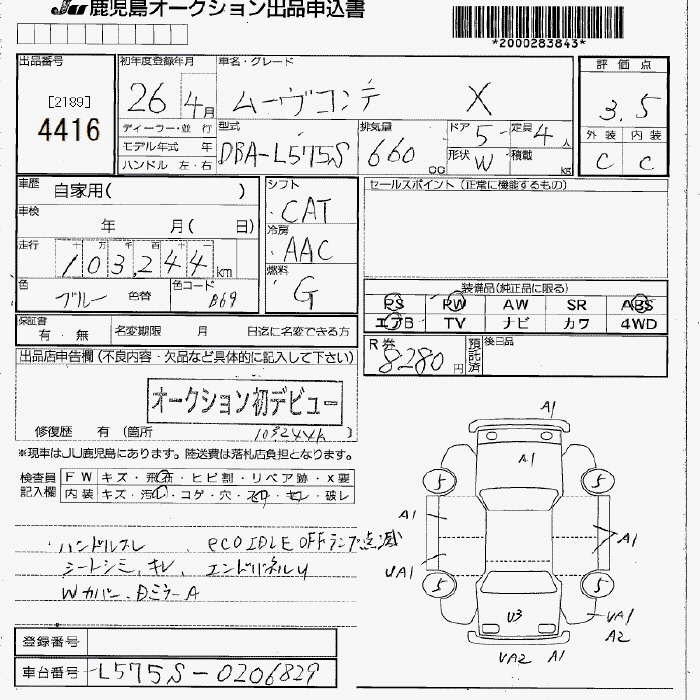 JU 鹿児島オークション出品申込書
*2000283843*
出品番号
[2189]
4416
初年度登録年月
26 4月
ディーラー・並 行
モデル年式 年
ハンドル 左・右
車名・グレード
ムーヴコンテ X
型式
DBA-L575S
排気量
660 cc
ドア 5
定員 4人
形状 W
積載 kg
評価点
3.5
外装 内装
C C
車歴 自家用( )
車検 年 月( 日)
走行 十 万 千 百 十 一
103,244 km
色 ブルー 色替
色コード B69
シフト
CAT
冷房
AAC
燃料
G
セールスポイント (正常に機能するもの)
装備品(純正品に限る)
PS PW AW SR ABS
エアB TV ナビ カワ 4WD
保証書 有・無
名変期限 月 日迄に名変できる方
R券 8280円
預託済
後日品
出品店申告欄(不良内容・欠品など具体的に記入して下さい)
オークション初デビュー
修復歴 有 (箇所 103244k )
※現車はJU鹿児島にあります。陸送費は落札店負担となります。
検査員記入欄
FW キズ・飛石・ヒビ割・リペア跡・X要
内装 キズ・汚れ・コゲ・穴・スレ・キレ・破レ
ハンドルスレ、eco IDLE OFFランプ点滅
シートシミ、キレ、エンドパネルU
Wカバー、DミラーA
登録番号
車台番号 L575S-0206829
A1
A1
5 5
A1 A1
UA1
5 5
U3
UA1
A2
UA2 A1